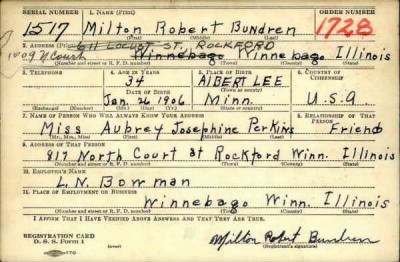 SERIAL NUMBER 1. NAME (Print) ORDER NUMBER
1517 Milton Robert Bundren 1728
(First) (Middle) (Last)
611 LOCUST ST. ROCKFORD
2. ADDRESS (Print)
1009 N Court Winnebago Winnebago Illinois
(Number and street or R. F. D. number) (Town) (County) (State)
3. TELEPHONE 4. AGE IN YEARS 5. PLACE OF BIRTH 6. COUNTRY OF CITIZENSHIP
34 ALBERT LEE
DATE OF BIRTH (Town or county)
Jan. 26 1906 Minn. U.S.A.
(Exchange) (Number) (Mo.) (Day) (Yr.) (State or country)
7. NAME OF PERSON WHO WILL ALWAYS KNOW YOUR ADDRESS 8. RELATIONSHIP OF THAT PERSON
Miss Aubrey Josephine Perkins Friend
(Mr., Mrs., Miss) (First) (Middle) (Last)
9. ADDRESS OF THAT PERSON
817 North Court at Rockford Winn. Illinois
(Number and street or R. F. D. number) (Town) (County) (State)
10. EMPLOYER'S NAME
L. N. Bowman
11. PLACE OF EMPLOYMENT OR BUSINESS
Winnebago Winn. Illinois
(Number and street or R. F. D. number) (Town) (County) (State)
I AFFIRM THAT I HAVE VERIFIED ABOVE ANSWERS AND THAT THEY ARE TRUE.
REGISTRATION CARD Milton Robert Bundren
D. S. S. Form 1 (Registrant's signature)